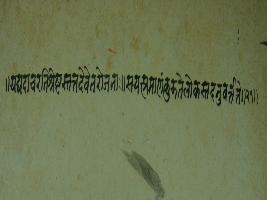 ॥यद्यदाचरतिश्रेष्ठस्तत्तदेवेतरोजनः॥सयत्प्रमाणंकुरुतेलोकस्तदनुवर्त्तते॥२१॥